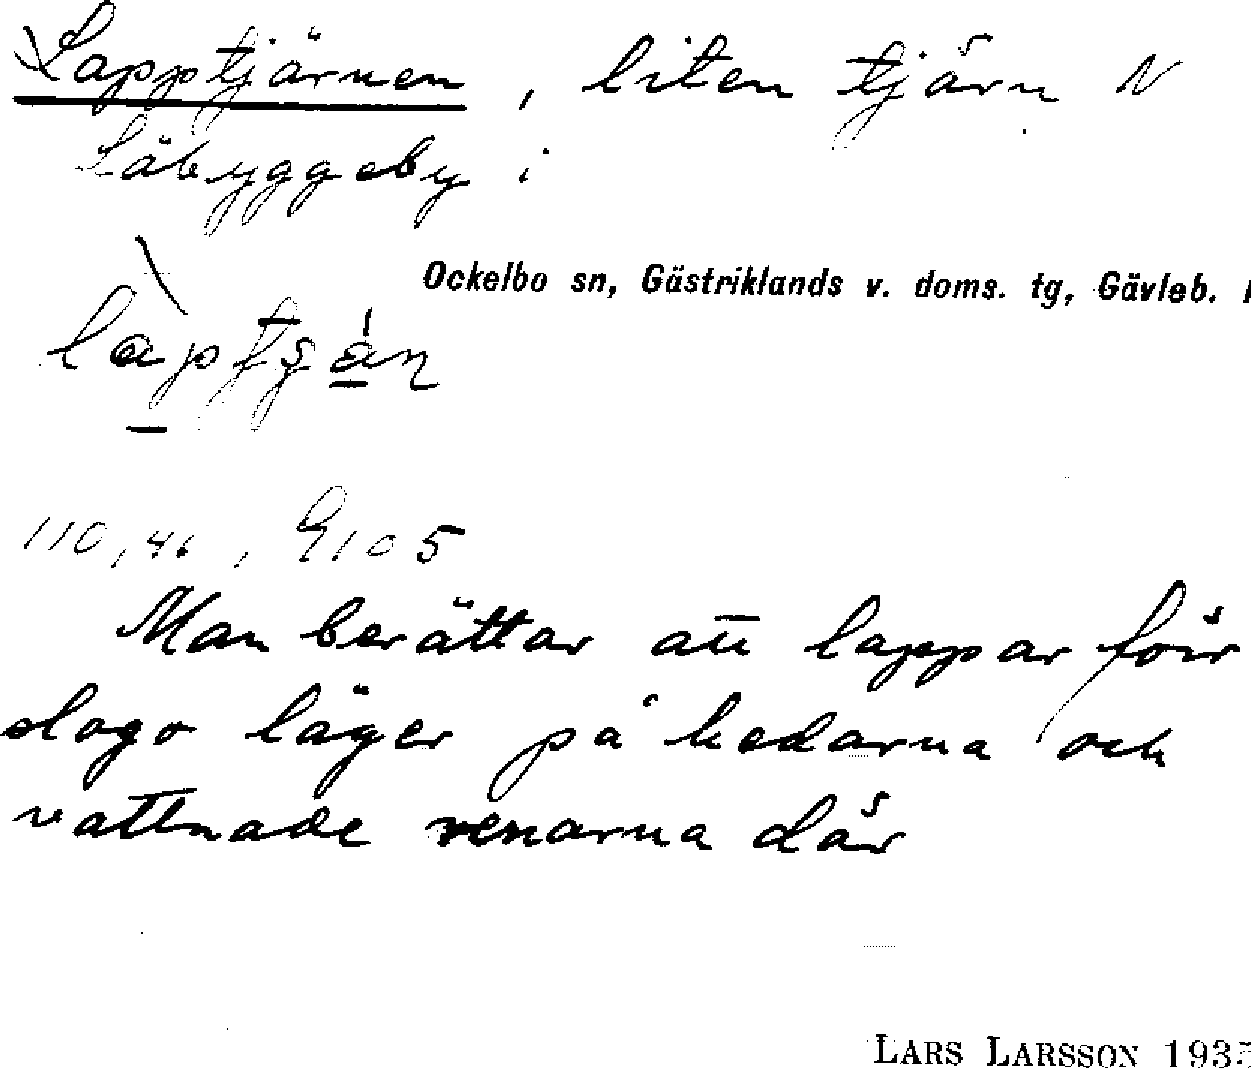 Lapptjärnen, liten tjärn N
Låbyggeby i
Ockelbo sn, Gästriklands v. doms. tg, Gävleb.
110,46, 9105
Man berättar att lappar förr
slogo läger på hedarna och
vattnade renarna där
LARS LARSSON 1935